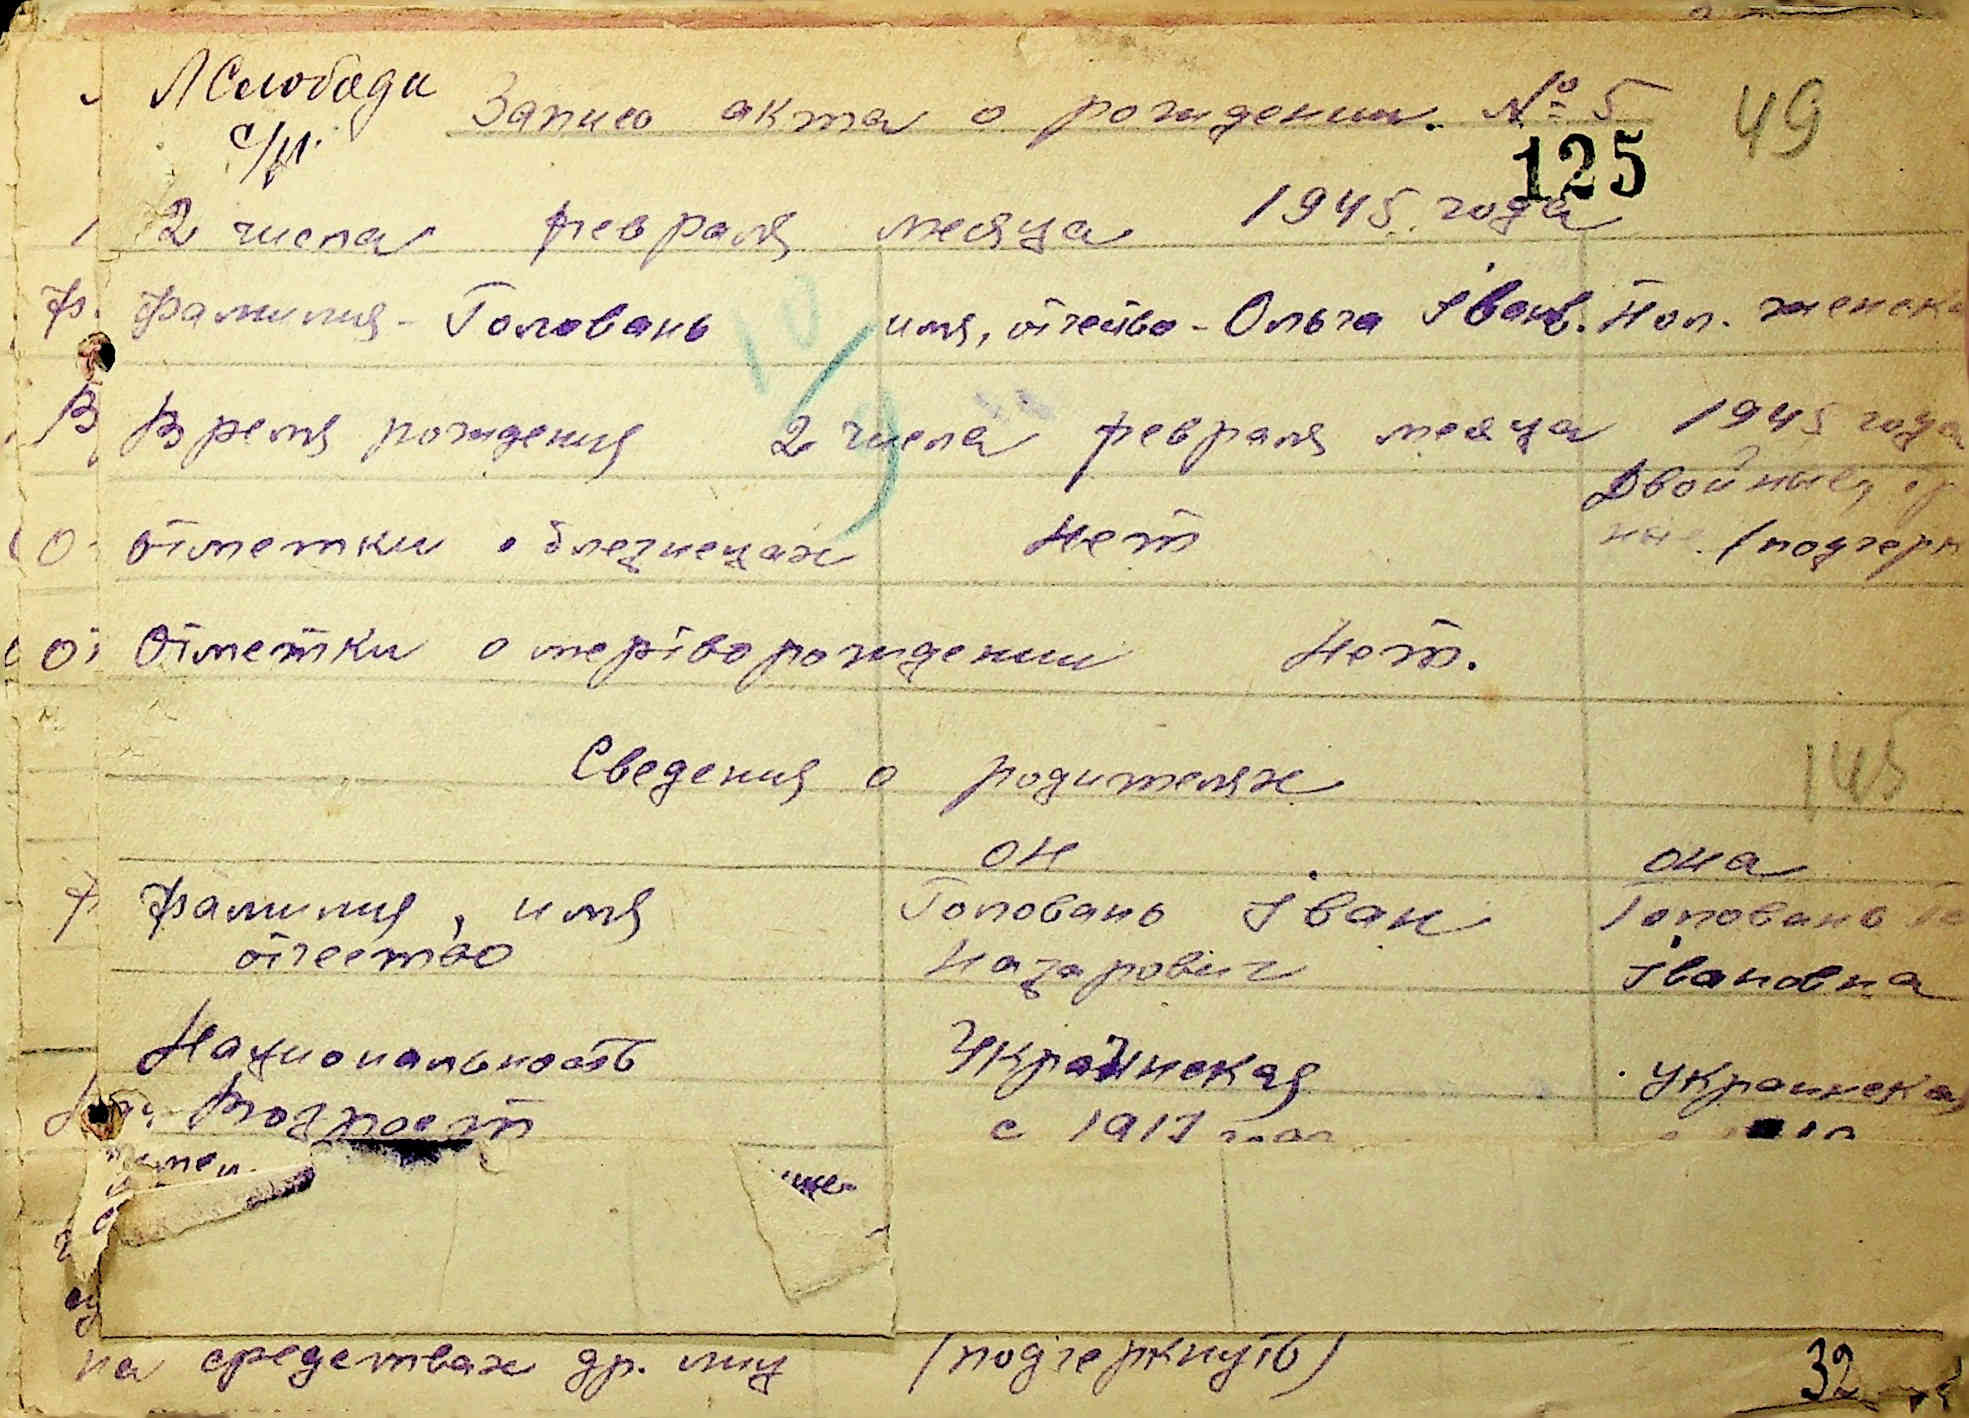 Л Слобода
с/р.
Запись акта о рождении. № 5
49
125
2 числа февраля месяца 1945 года
Фамилия - Головань имя, отчество - Ольга Іванв. Пол. женска
Время рождения 2 числа февраля месяца 1945 года
Двойные,
Отметки о близнецах Нет /подчерк
Отметки о мертворождении Нет.
Сведения о родителях
145
он она
Фамилия, имя Головань Іван Головань
отчество Назарович Івановна
Национальность Украинская Украинская
Возраст с 1917
на средствах др. лиц (подчеркнуть)
32